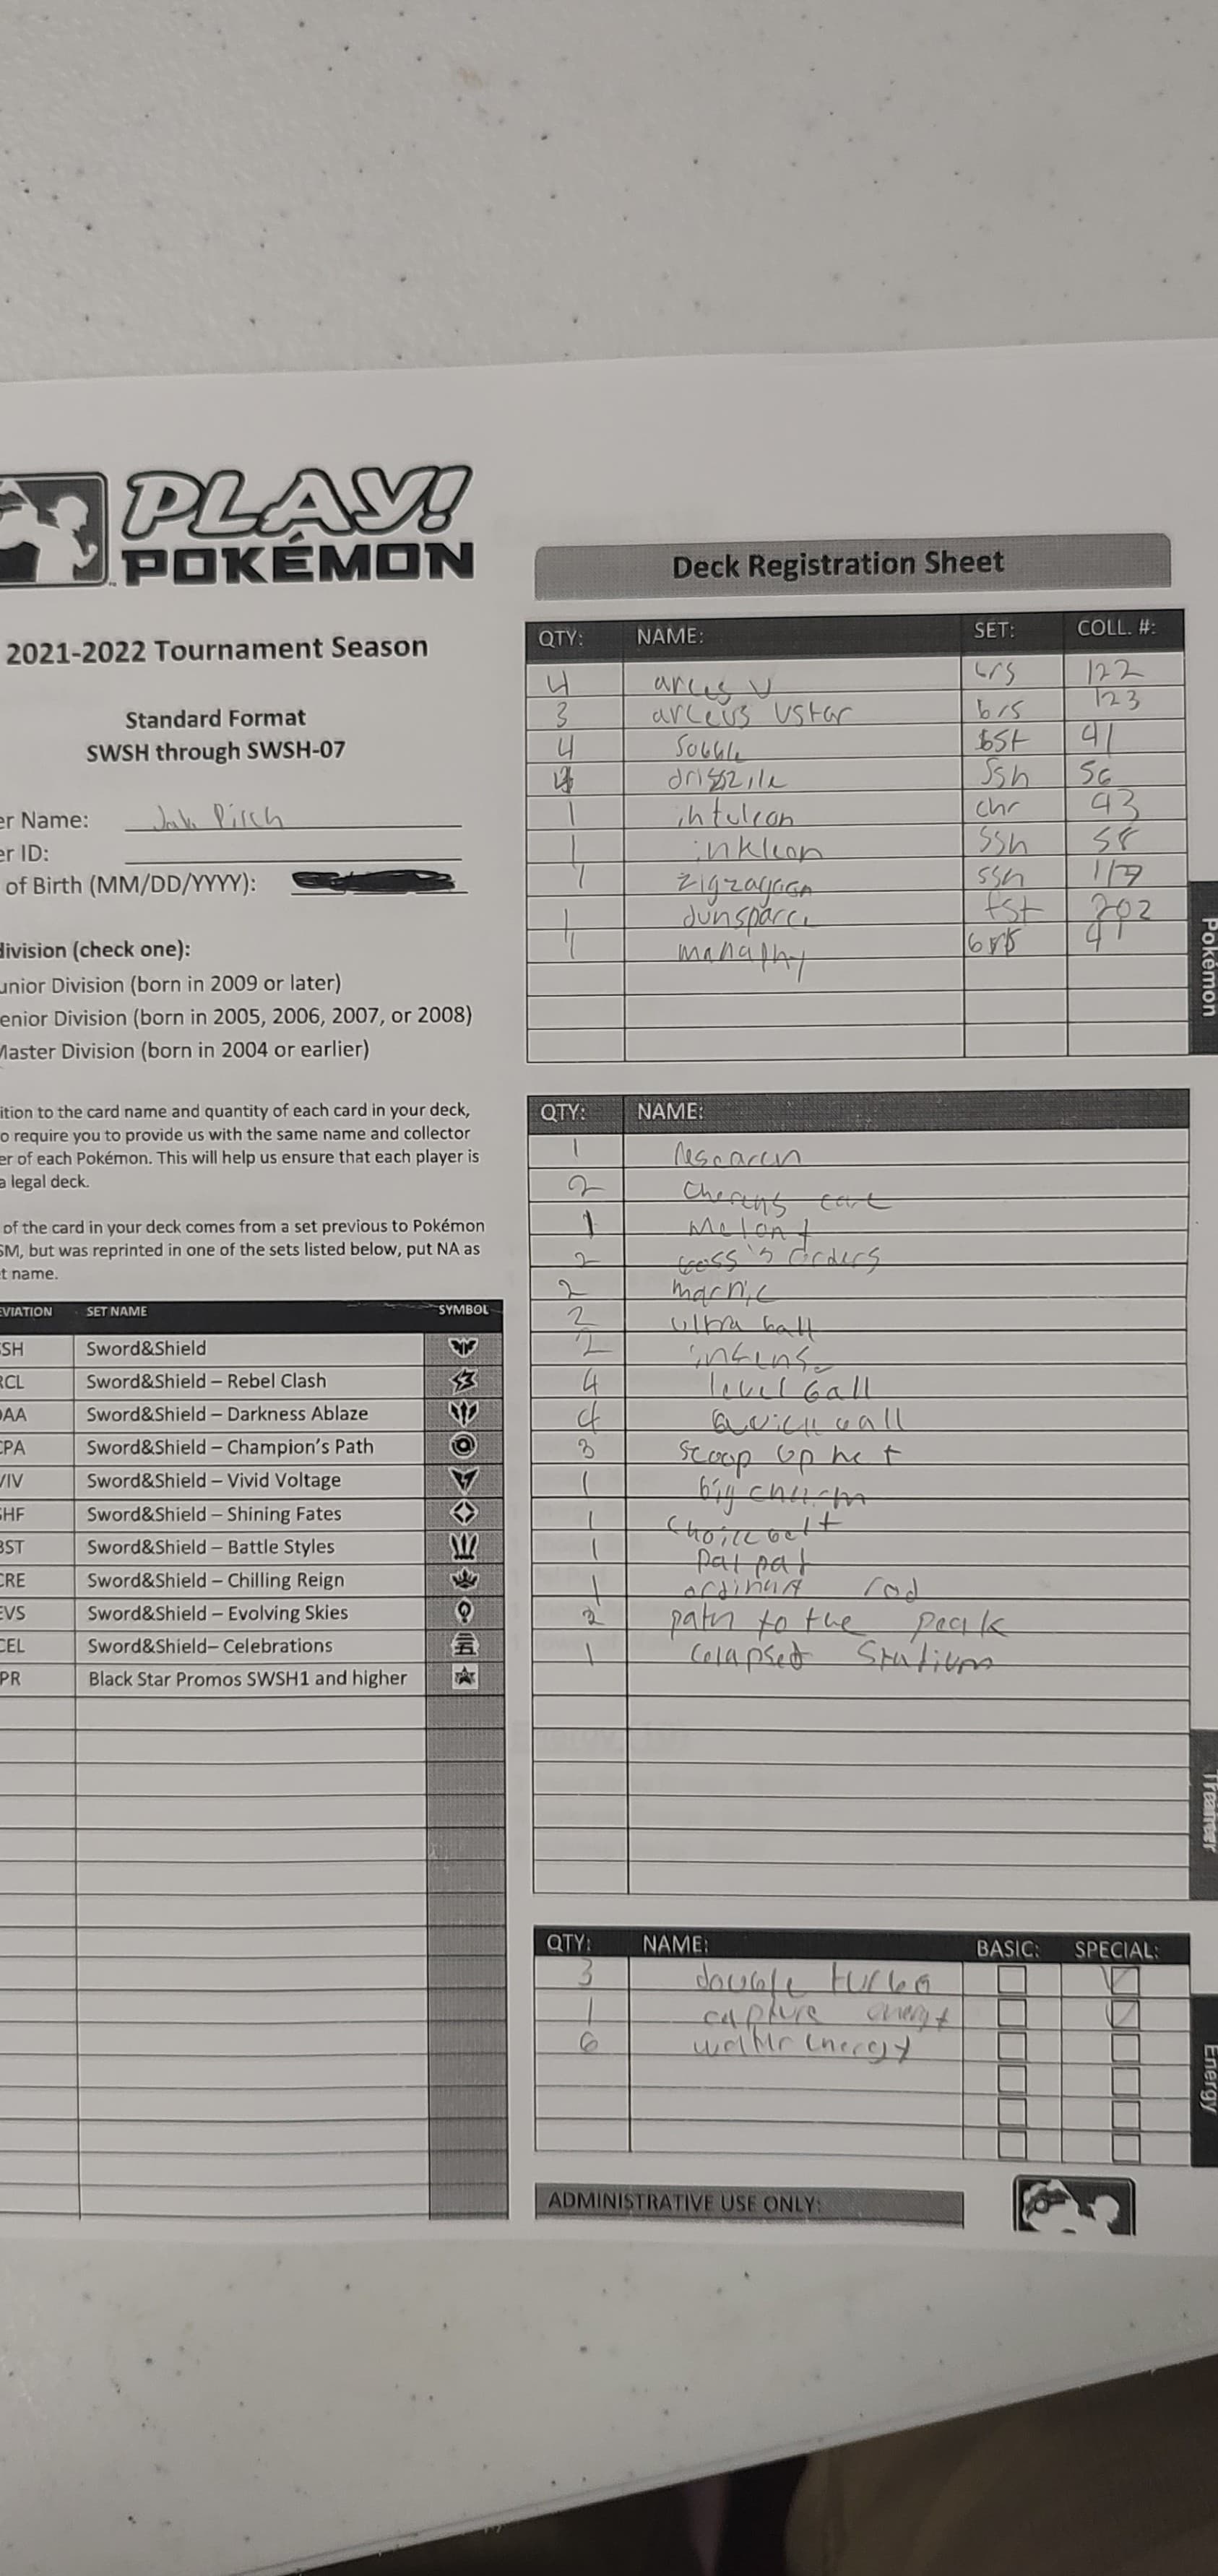 PLAY!
POKÉMON
2021-2022 Tournament Season
Standard Format
SWSH through SWSH-07
er Name:
er ID:
of Birth (MM/DD/YYYY):
division (check one):
unior Division (born in 2009 or later)
enior Division (born in 2005, 2006, 2007, or 2008)
Master Division (born in 2004 or earlier)
ition to the card name and quantity of each card in your deck,
o require you to provide us with the same name and collector
er of each Pokémon. This will help us ensure that each player is
a legal deck.
of the card in your deck comes from a set previous to Pokémon
SM, but was reprinted in one of the sets listed below, put NA as
t name.
EVIATION SET NAME SYMBOL
SH Sword&Shield
RCL Sword&Shield – Rebel Clash
DAA Sword&Shield – Darkness Ablaze
CPA Sword&Shield – Champion's Path
VIV Sword&Shield – Vivid Voltage
SHF Sword&Shield – Shining Fates
BST Sword&Shield – Battle Styles
CRE Sword&Shield – Chilling Reign
EVS Sword&Shield – Evolving Skies
CEL Sword&Shield– Celebrations
PR Black Star Promos SWSH1 and higher
Deck Registration Sheet
QTY: NAME: SET: COLL. #:
4 arceus V brs 122
3 arceus Vstar brs 123
4 Sobble bst 41
4 drizzile ssh 56
1 inteleon chr 43
1 inteleon ssh 58
1 zigzagoon ssh 117
1 dunsparce fst 202
1 manaphy brs 41
Pokémon
QTY: NAME:
1 Research
2 cherens care
1
2 boss's orders
2 marnie
2 ultra ball
2
4 level ball
4 quick ball
3 scoop up net
1 big charm
1 choice belt
1 pal pad
1 ordinary rod
2 path to the peak
1 colapsed Stadium
Trainer
QTY: NAME: BASIC: SPECIAL:
3 double turbo
1 capture energy
6 water energy
Energy
ADMINISTRATIVE USE ONLY: